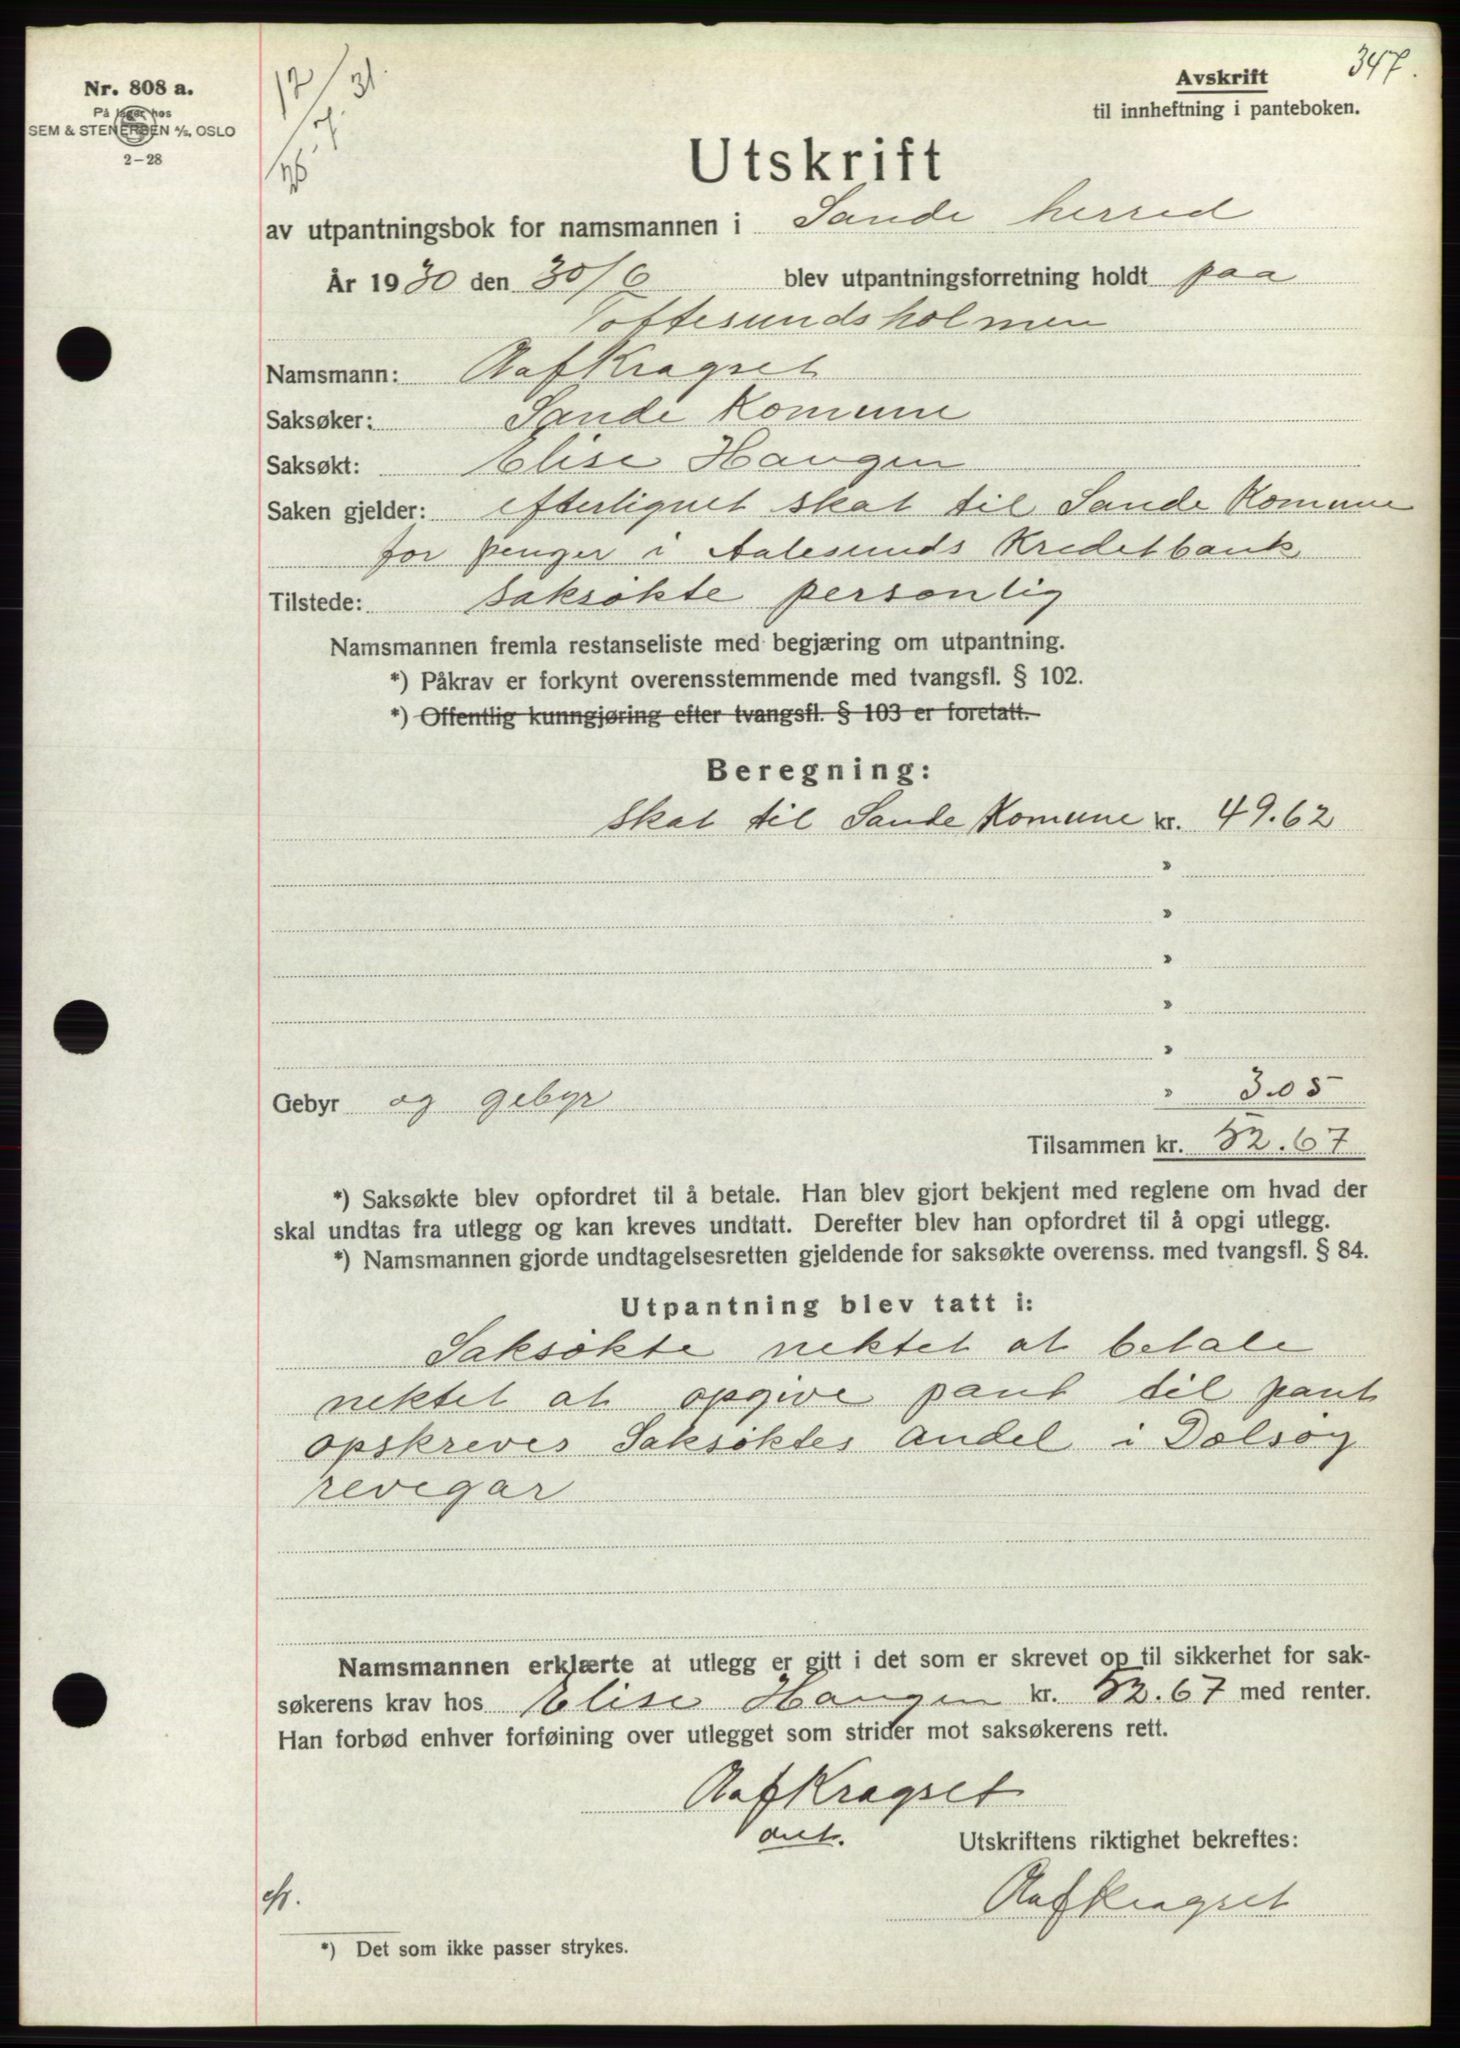 347.
Nr. 808 a.
På lager hos
SEM & STENERSEN A/S, OSLO
2–28
Avskrift
til innheftning i panteboken.
Utskrift
av utpantningsbok for namsmannen i Sande herred
År 1930 den 30/6 blev utpantningsforretning holdt paa
Toftesundsholmen
Namsmann: Kragset
Saksøker: Sande Komune
Saksøkt: Elise Haugen
Saken gjelder: efterlignet skat til Sande Komune
for penger i Aalesunds Kreditbank
Tilstede: saksøkte personlig
Namsmannen fremla restanseliste med begjæring om utpantning.
*) Påkrav er forkynt overensstemmende med tvangsfl. § 102.
*) Offentlig kunngjøring efter tvangsfl. § 103 er foretatt.
Beregning:
skat til Sande Komune kr. 49.62
»
»
»
»
»
Gebyr og gebyr » 3.05
Tilsammen kr. 52.67
*) Saksøkte blev opfordret til å betale. Han blev gjort bekjent med reglene om hvad der
skal undtas fra utlegg og kan kreves undtatt. Derefter blev han opfordret til å opgi utlegg.
*) Namsmannen gjorde undtagelsesretten gjeldende for saksøkte overenss. med tvangsfl. § 84.
Utpantning blev tatt i:
Saksøkte nektet at betale
nektet at opgive pant til pant
opskreves Saksøktes andel i Dolsøy
revegar
Namsmannen erklærte at utlegg er gitt i det som er skrevet op til sikkerhet for sak-
søkerens krav hos Elise Haugen kr. 52.67 med renter.
Han forbød enhver forføining over utlegget som strider mot saksøkerens rett.
Kragset
Utskriftens riktighet bekreftes:
Kragset
*) Det som ikke passer strykes.